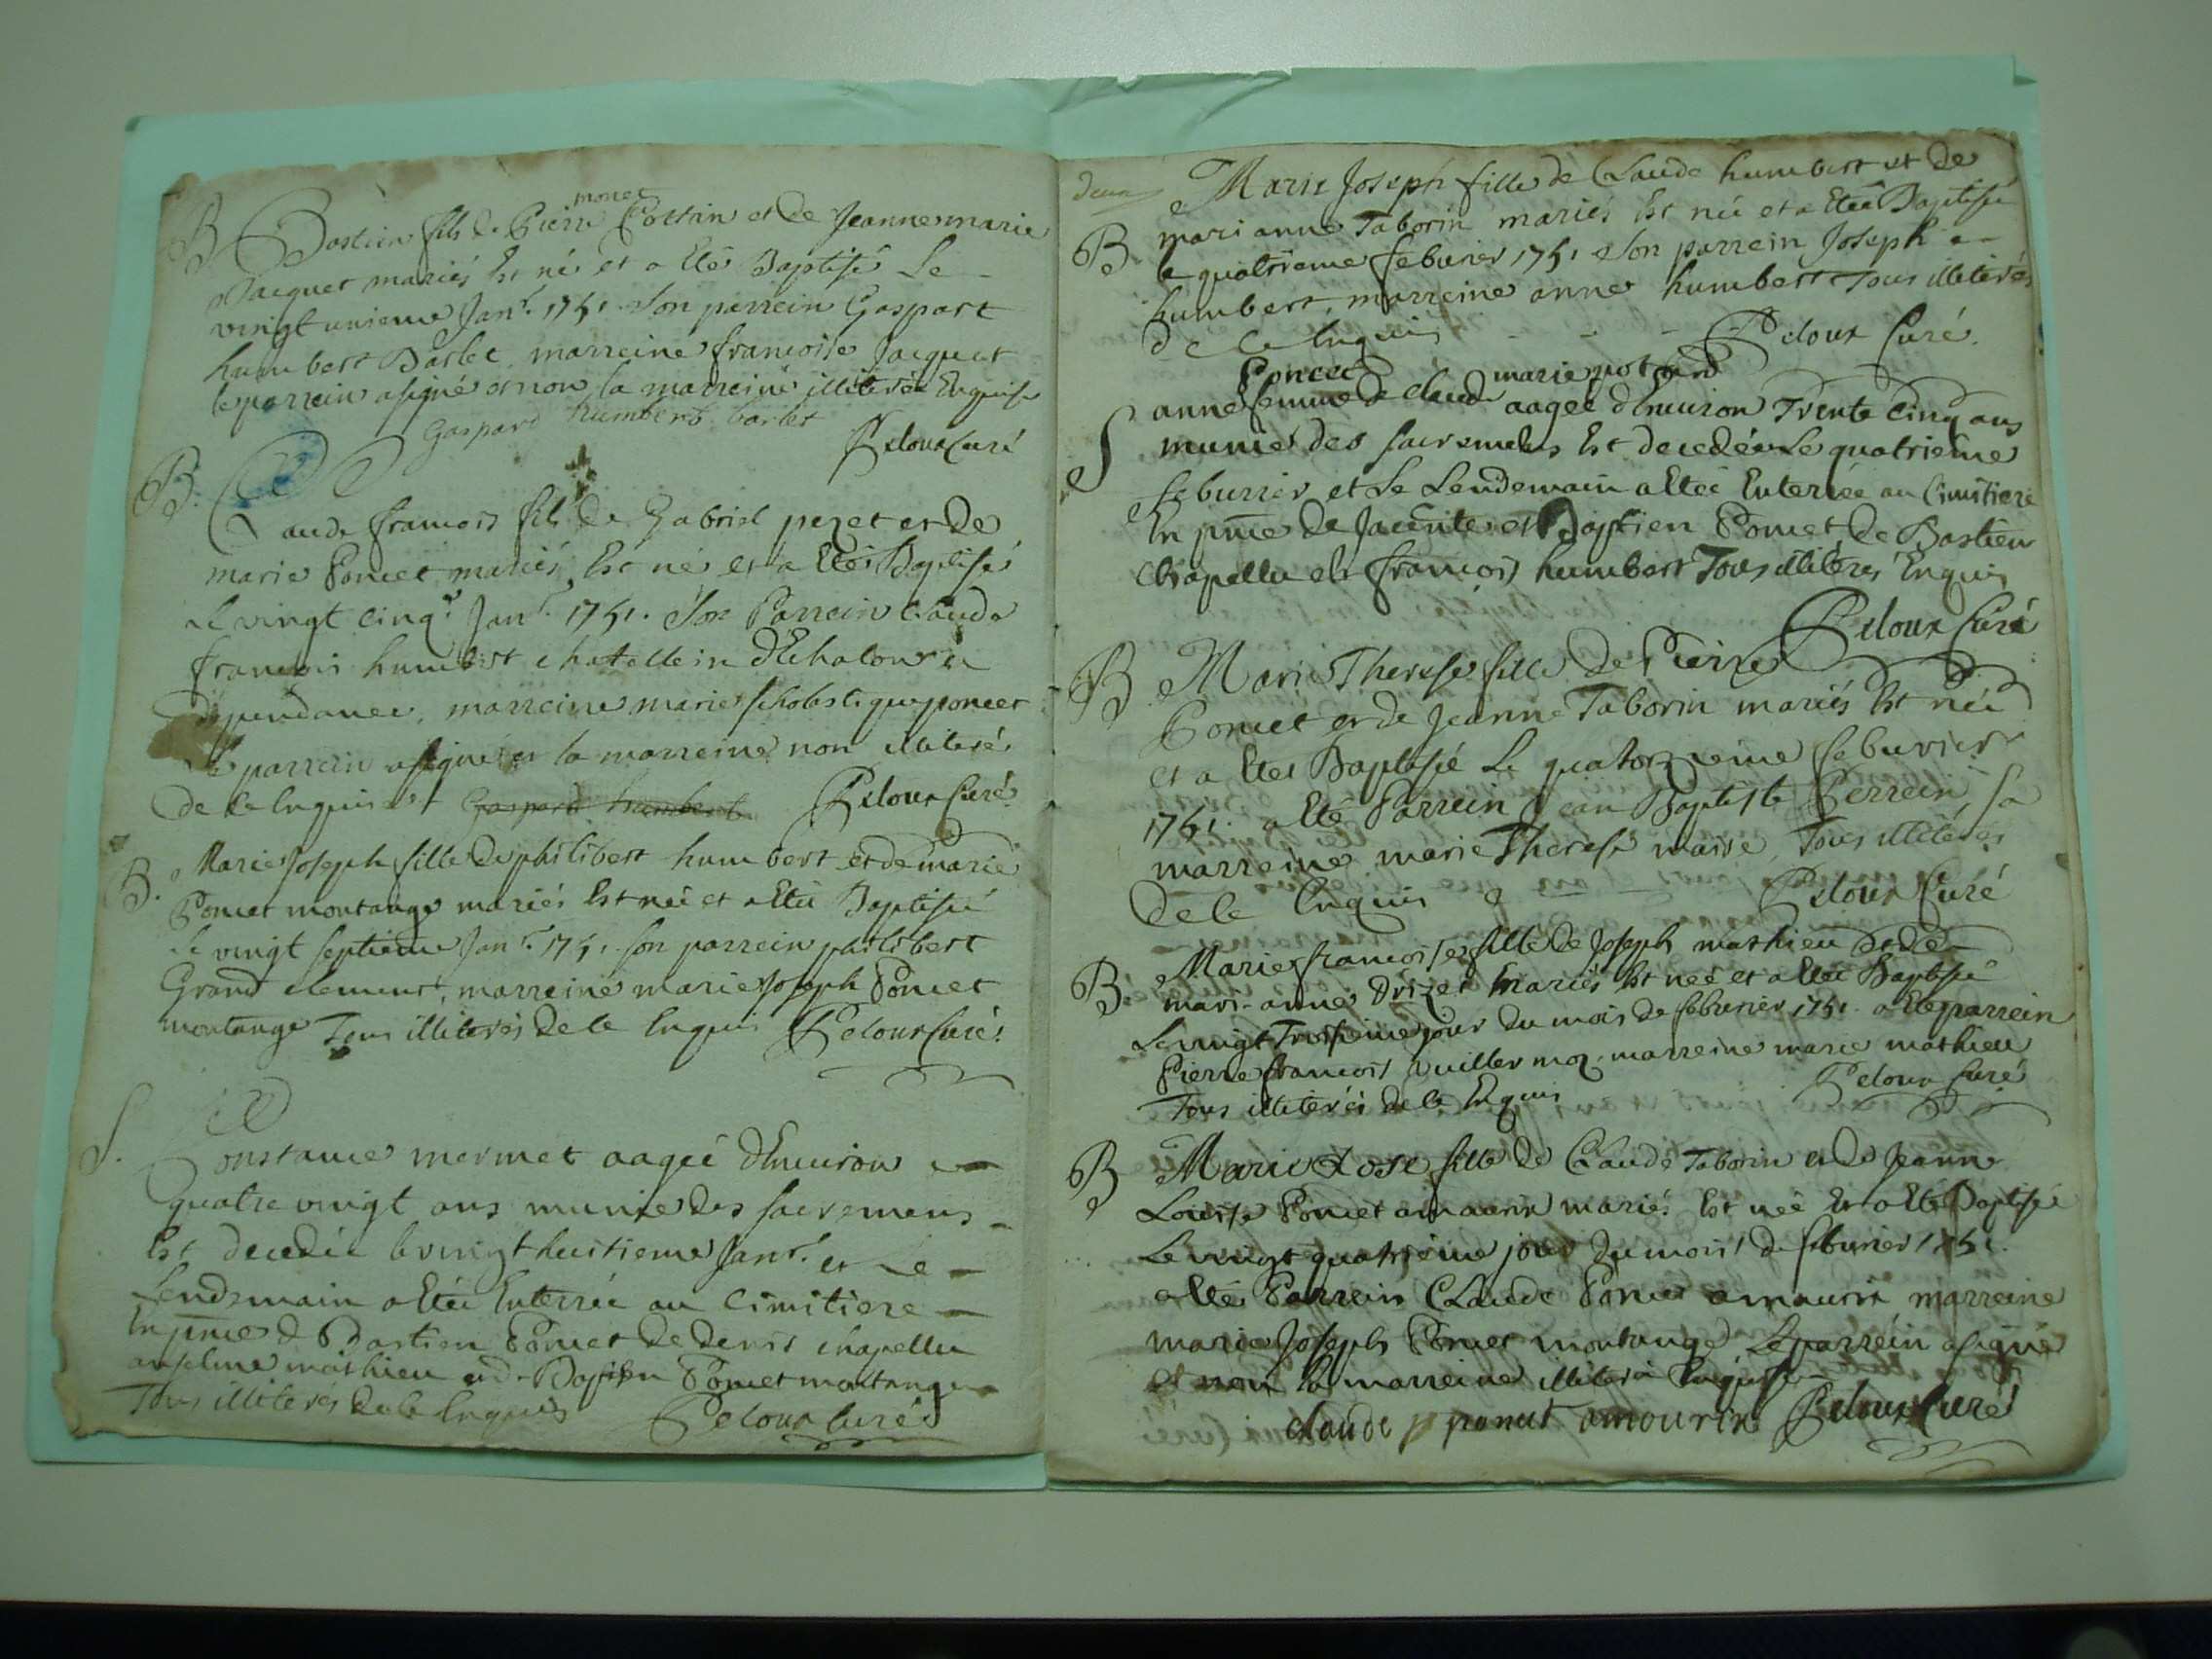 monet
B Bastien fils de Pierre Cottin et de Jeanne marie
Jacquet mariés Est né et a Eté Baptisé Le
vingt unieme Janr. 1751. Son parrein Gaspart
humbert Barlet marreine francoise Jacquet
le parrein a signé et non la marreine illiterée Enquise
Gaspard humbert barlet
Peloux Curé
B. Claude francois fils de Gabriel pezet et de
marie Poncet mariés Est né et a Eté Baptisé
Le vingt cinq.e Janr. 1751. Son Parrein Claude
francois humbert chatellein d'Echalon et
dépendances, marreine marie scholastique poncet
le parrein a signé et la marreine non illiterée
de ce Enquise Peloux Curé
B. Marie Joseph fille de philibert humbert et de marie
Poncet montange mariés Est née et a Eté Baptisée
Le vingt septieme Janr. 1751. son parrein philibert
Grand clement, marreine marie Joseph Poncet
montange Tous illiterés de ce Enquis Peloux Curé.
S. Constance mermet aagée d'Environ
quatre vingt ans munie des sacremens
Est decedée le vingt huitieme Janr. et Le
Lendemain a Eté Enterrée au Cimitiere
En pnce de Bastien Poncet de denis chapellu
anselme mathieu et de Bastien Poncet montange
Tous illiterés de ce Enquis Peloux Curé
deux
Marie Joseph fille de Claude humbert et de
B mari anne Taborin mariés Est née et a Eté Baptisée
le quatrieme feburier 1751 Son parrein Joseph
humbert, marreine anne humbert Tous illiterés
de ce Enquis - - - Peloux Curé.
Poncet marie
S anne femme de Claude aagée d'Environ Trente Cinq ans
munie des sacremens Est decedée Le quatrieme
feburier et Le Lendemain a Eté Enterrée au Cimitiere
En pnce de et Bastien Poncet, de Bastien
Chapellu et francois humbert Tous illiterés Enquis
Peloux Curé
B Marie Therese fille de Pierre
Poncet et de Jeanne Taborin mariés Est née
et a Eté Baptisée Le quatorzieme feburier
1751. a Eté Parrein Jean Baptiste Perrein, sa
marreine marie Therese Tous illiterés
de ce Enquis Peloux Curé
Marie francoise fille de Joseph mathieu et de
B mari-anne mariés Est née et a Eté Baptisée
Le vingt Troisieme jour du mois de feburier 1751. a Eté parrein
Pierre francois vuillermoz. marreine marie mathieu
Tous illiterés de ce Enquis Peloux Curé
B Marie Rose fille de Claude Taborin et de Jeanne
Louise Poncet amaurix mariés Est née Et a Eté Baptisée
Le vingt quatrieme jour du mois de feburier 1751.
a Eté Parrein Claude Poncet amaurix marreine
marie Joseph Poncet montange Le parrein a signé
et non la marreine illiterée Enquise
claude ponset amourix Peloux Curé